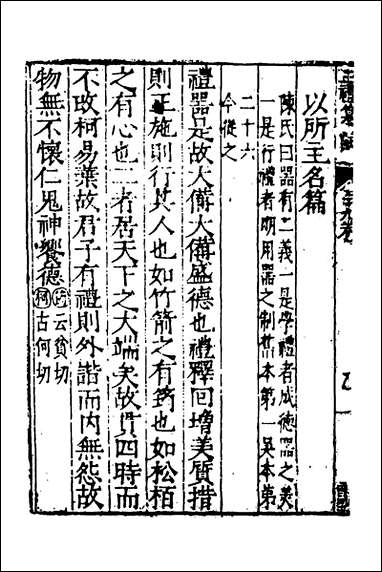 以所主名篇
陳氏曰器有二義一是學禮者成德器之美
一是行禮者明用器之制舊本第一吳本第
二十六
今從之
禮器是故大備大備盛德也禮釋回增美質措
則正施則行其人也如竹箭之有筠也如松栢
之有心也二者居天下之大端矣故貫四時而
不改柯易葉故君子有禮則外諧而內無怨故
物無不懷仁鬼神饗德
筠云貧切
柯古何切